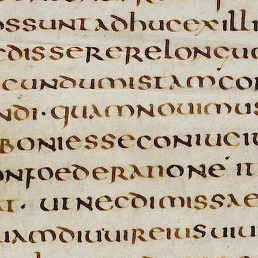 OSSUNTADHUCEXILLI
EDISSERERELONGUO
CUNDUMISTAMCON
NDI·QUAMNOUIMUS
BONIESSECONIUGII
ONFOEDERATIONE IT
AT· UTNECDIMISSAE
UAMDIUUIREIUSUIU